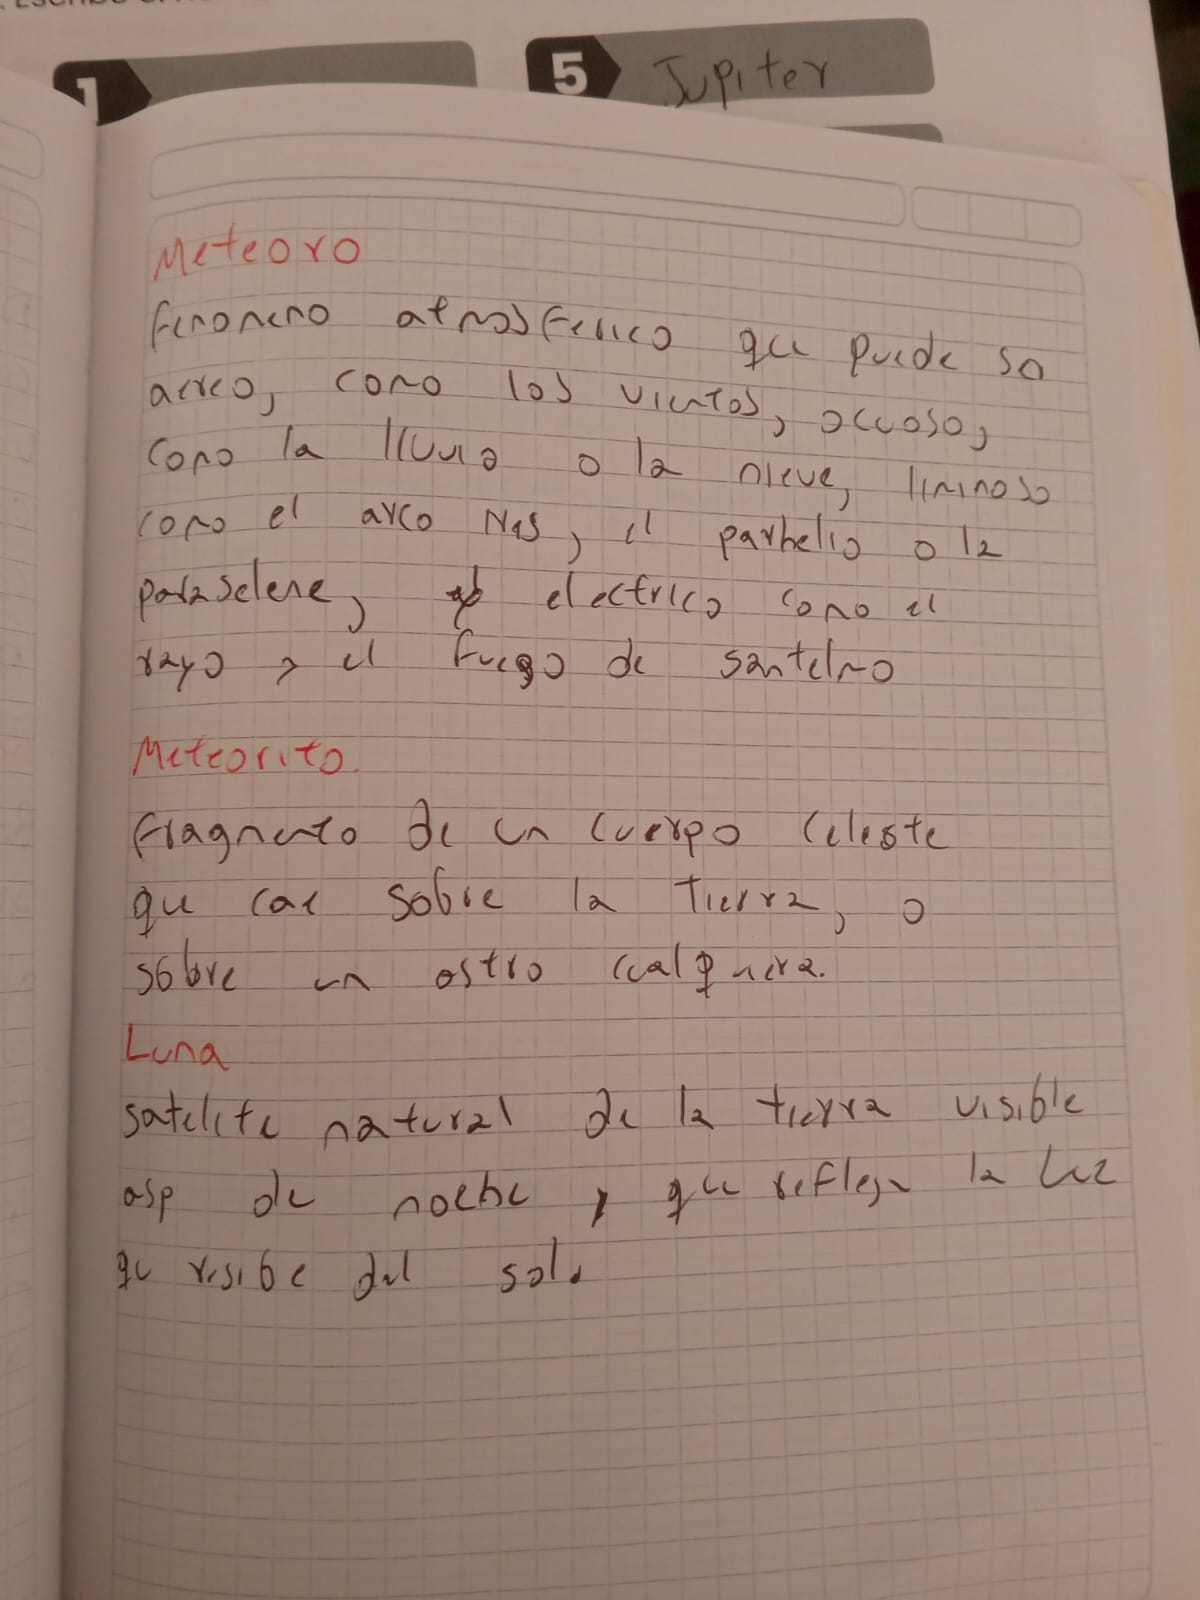 1
5 Jupiter
Meteoro
fenomeno atmosferico que puede se
aereo, como los vientos, acuoso,
como la lluvia o la nieve, liminoso
como el arco el parhelio o la
paraselene, electrico como el
rayo y el fuego de santelmo
Meteorito.
fragmento de un cuerpo celeste
que cae sobre la tierra, o
sobre un astro cualquiera.
Luna
satelite natural de la tierra visible
asp de noche y que refleja la luz
qu visibe del sol.